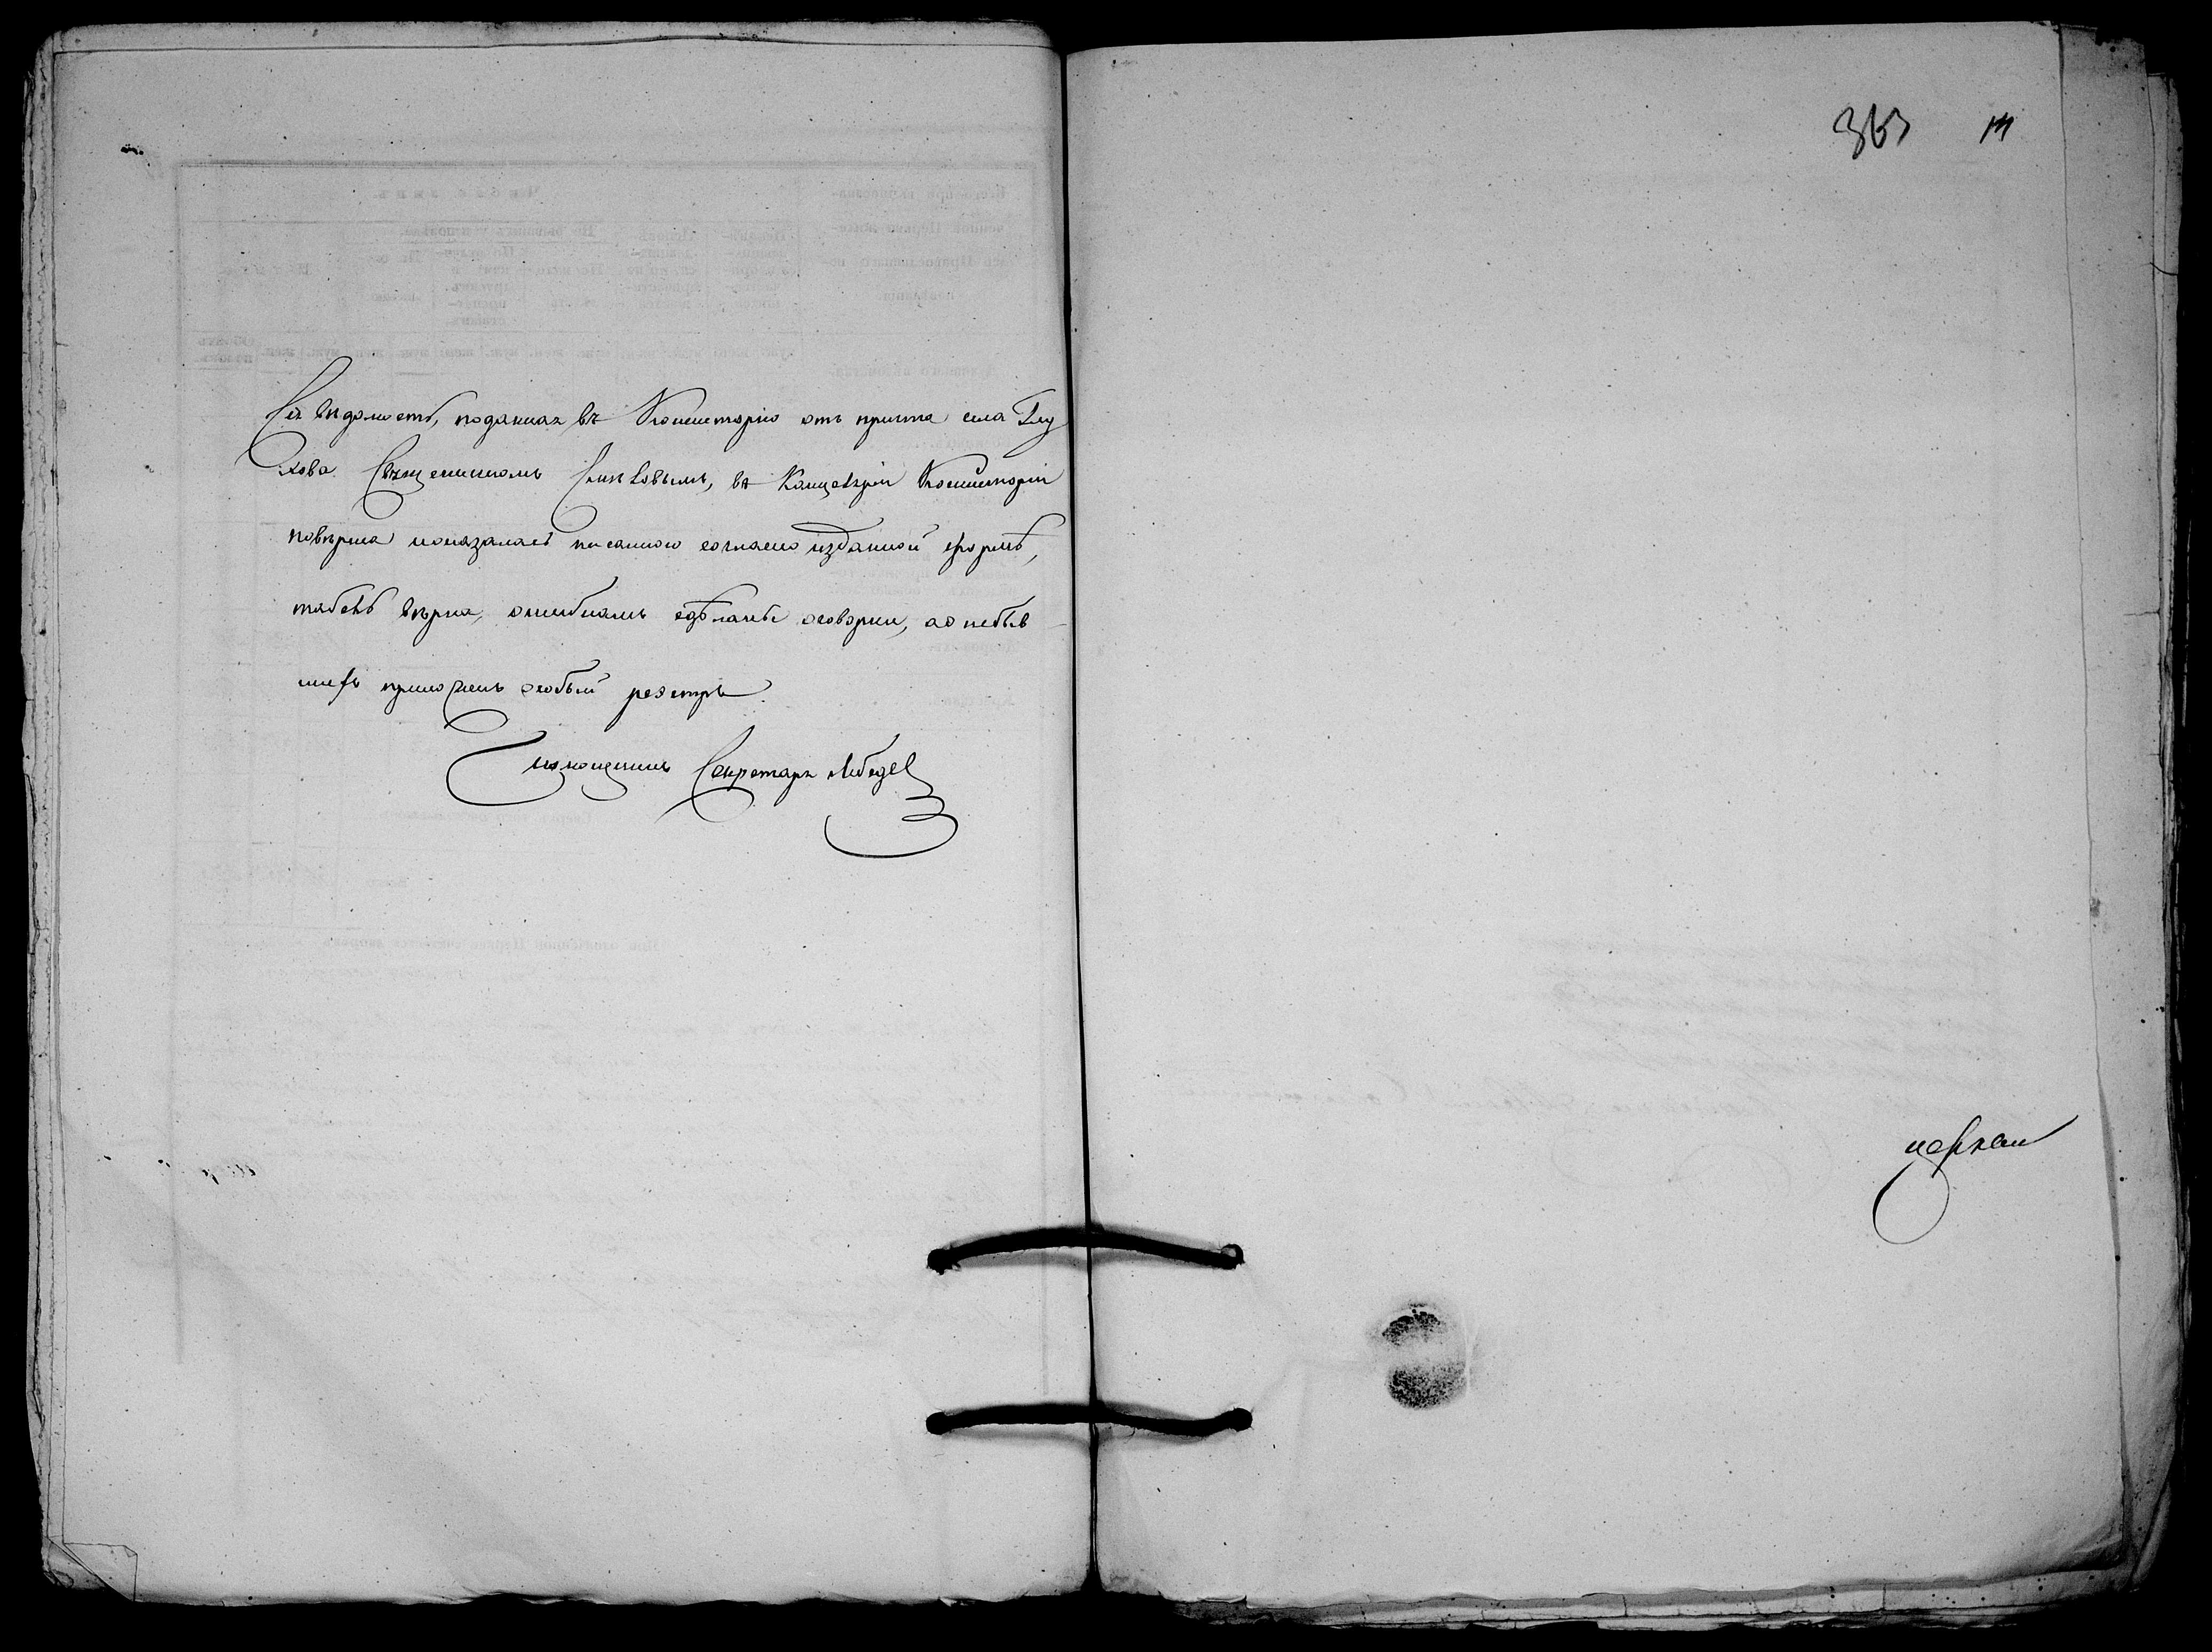 Сія вѣдомость, поданная въ Консисторію отъ причта села Глу
хова Священникомъ въ Канцеляріи Консисторіи
повѣрена и оказалась писанною согласно изданной формѣ,
табель вѣрна, ошибкамъ сдѣланы оговорки, а о небыв
шихъ приложенъ особый реестръ.
Секретарь Лебедев
363
церкви